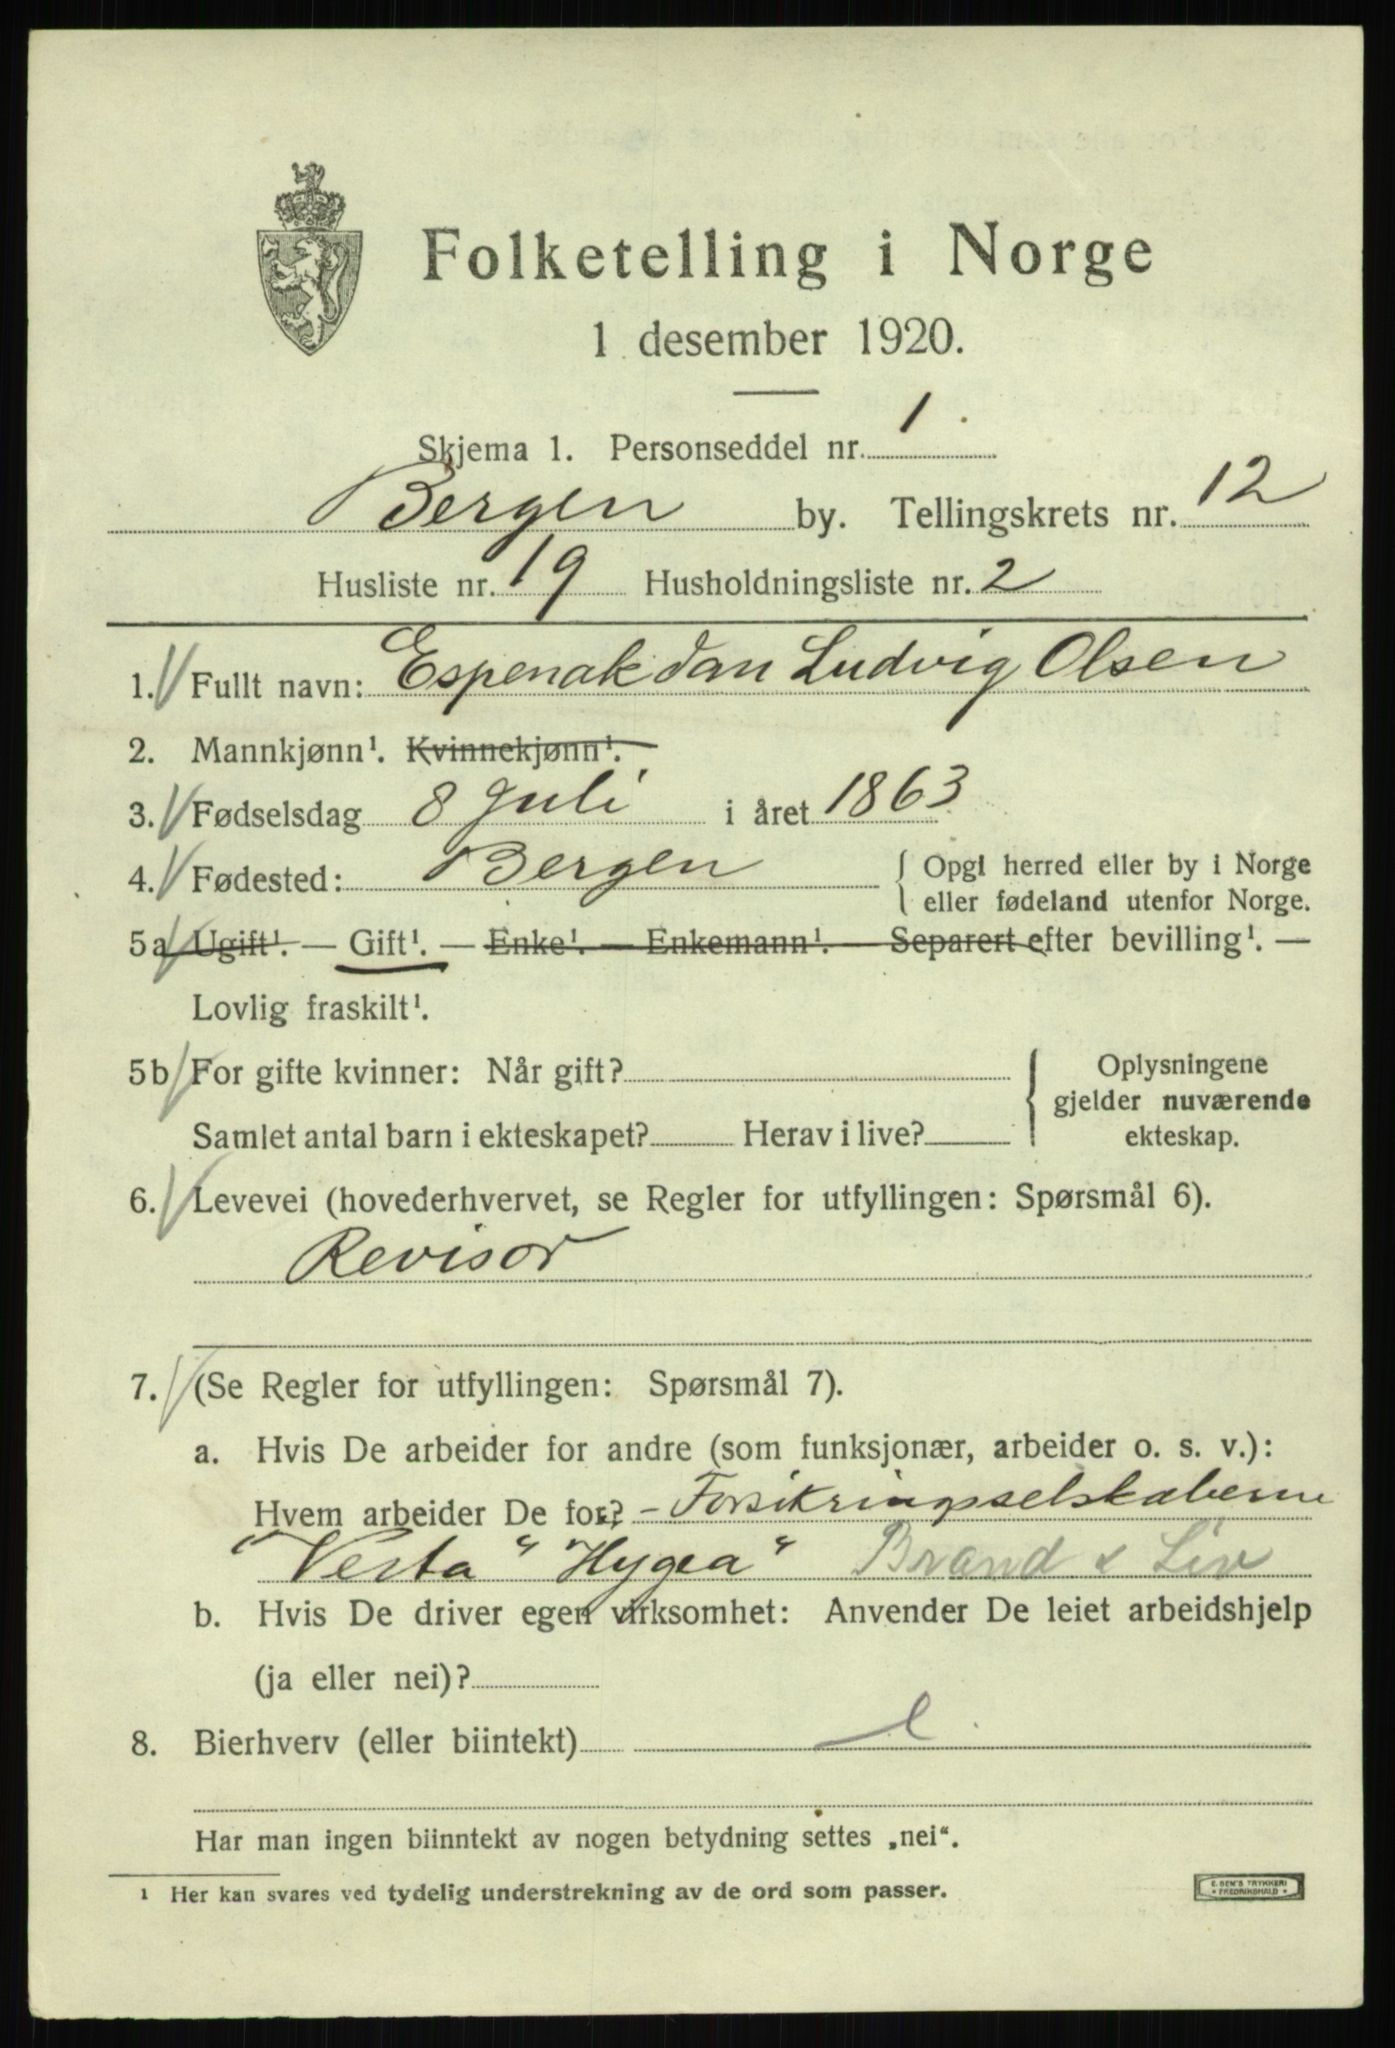 Folketelling i Norge
1 desember 1920.
Skjema 1. Personseddel nr. 1
Bergen by. Tellingskrets nr. 12
Husliste nr. 19 Husholdningsliste nr. 2
1. Fullt navn: Espenak Jan Ludvig Olsen
2. Mannkjønn¹. Kvinnekjønn¹.
3. Fødselsdag 8 Juli i året 1863
4. Fødested: Bergen { Opgi herred eller by i Norge
eller fødeland utenfor Norge.
5a Ugift¹. — Gift¹. — Enke¹. — Enkemann¹. — Separert efter bevilling¹. —
Lovlig fraskilt¹.
5b For gifte kvinner: Når gift? { Oplysningene
gjelder nuværende
Samlet antal barn i ekteskapet? Herav i live? ekteskap.
6. Levevei (hovederhvervet, se Regler for utfyllingen: Spørsmål 6).
Revisor
7. (Se Regler for utfyllingen: Spørsmål 7).
a. Hvis De arbeider for andre (som funksjonær, arbeider o. s. v.):
Hvem arbeider De for? – Forsikringsselskaberne
"Vesta" "Hygea" Brand & Liv
b. Hvis De driver egen virksomhet: Anvender De leiet arbeidshjelp
(ja eller nei)?
8. Bierhverv (eller biintekt)
Har man ingen biinntekt av nogen betydning settes „nei“.
¹ Her kan svares ved tydelig understrekning av de ord som passer.
E. SEM'S TRYKKERI
* FREDRIKSHALD *